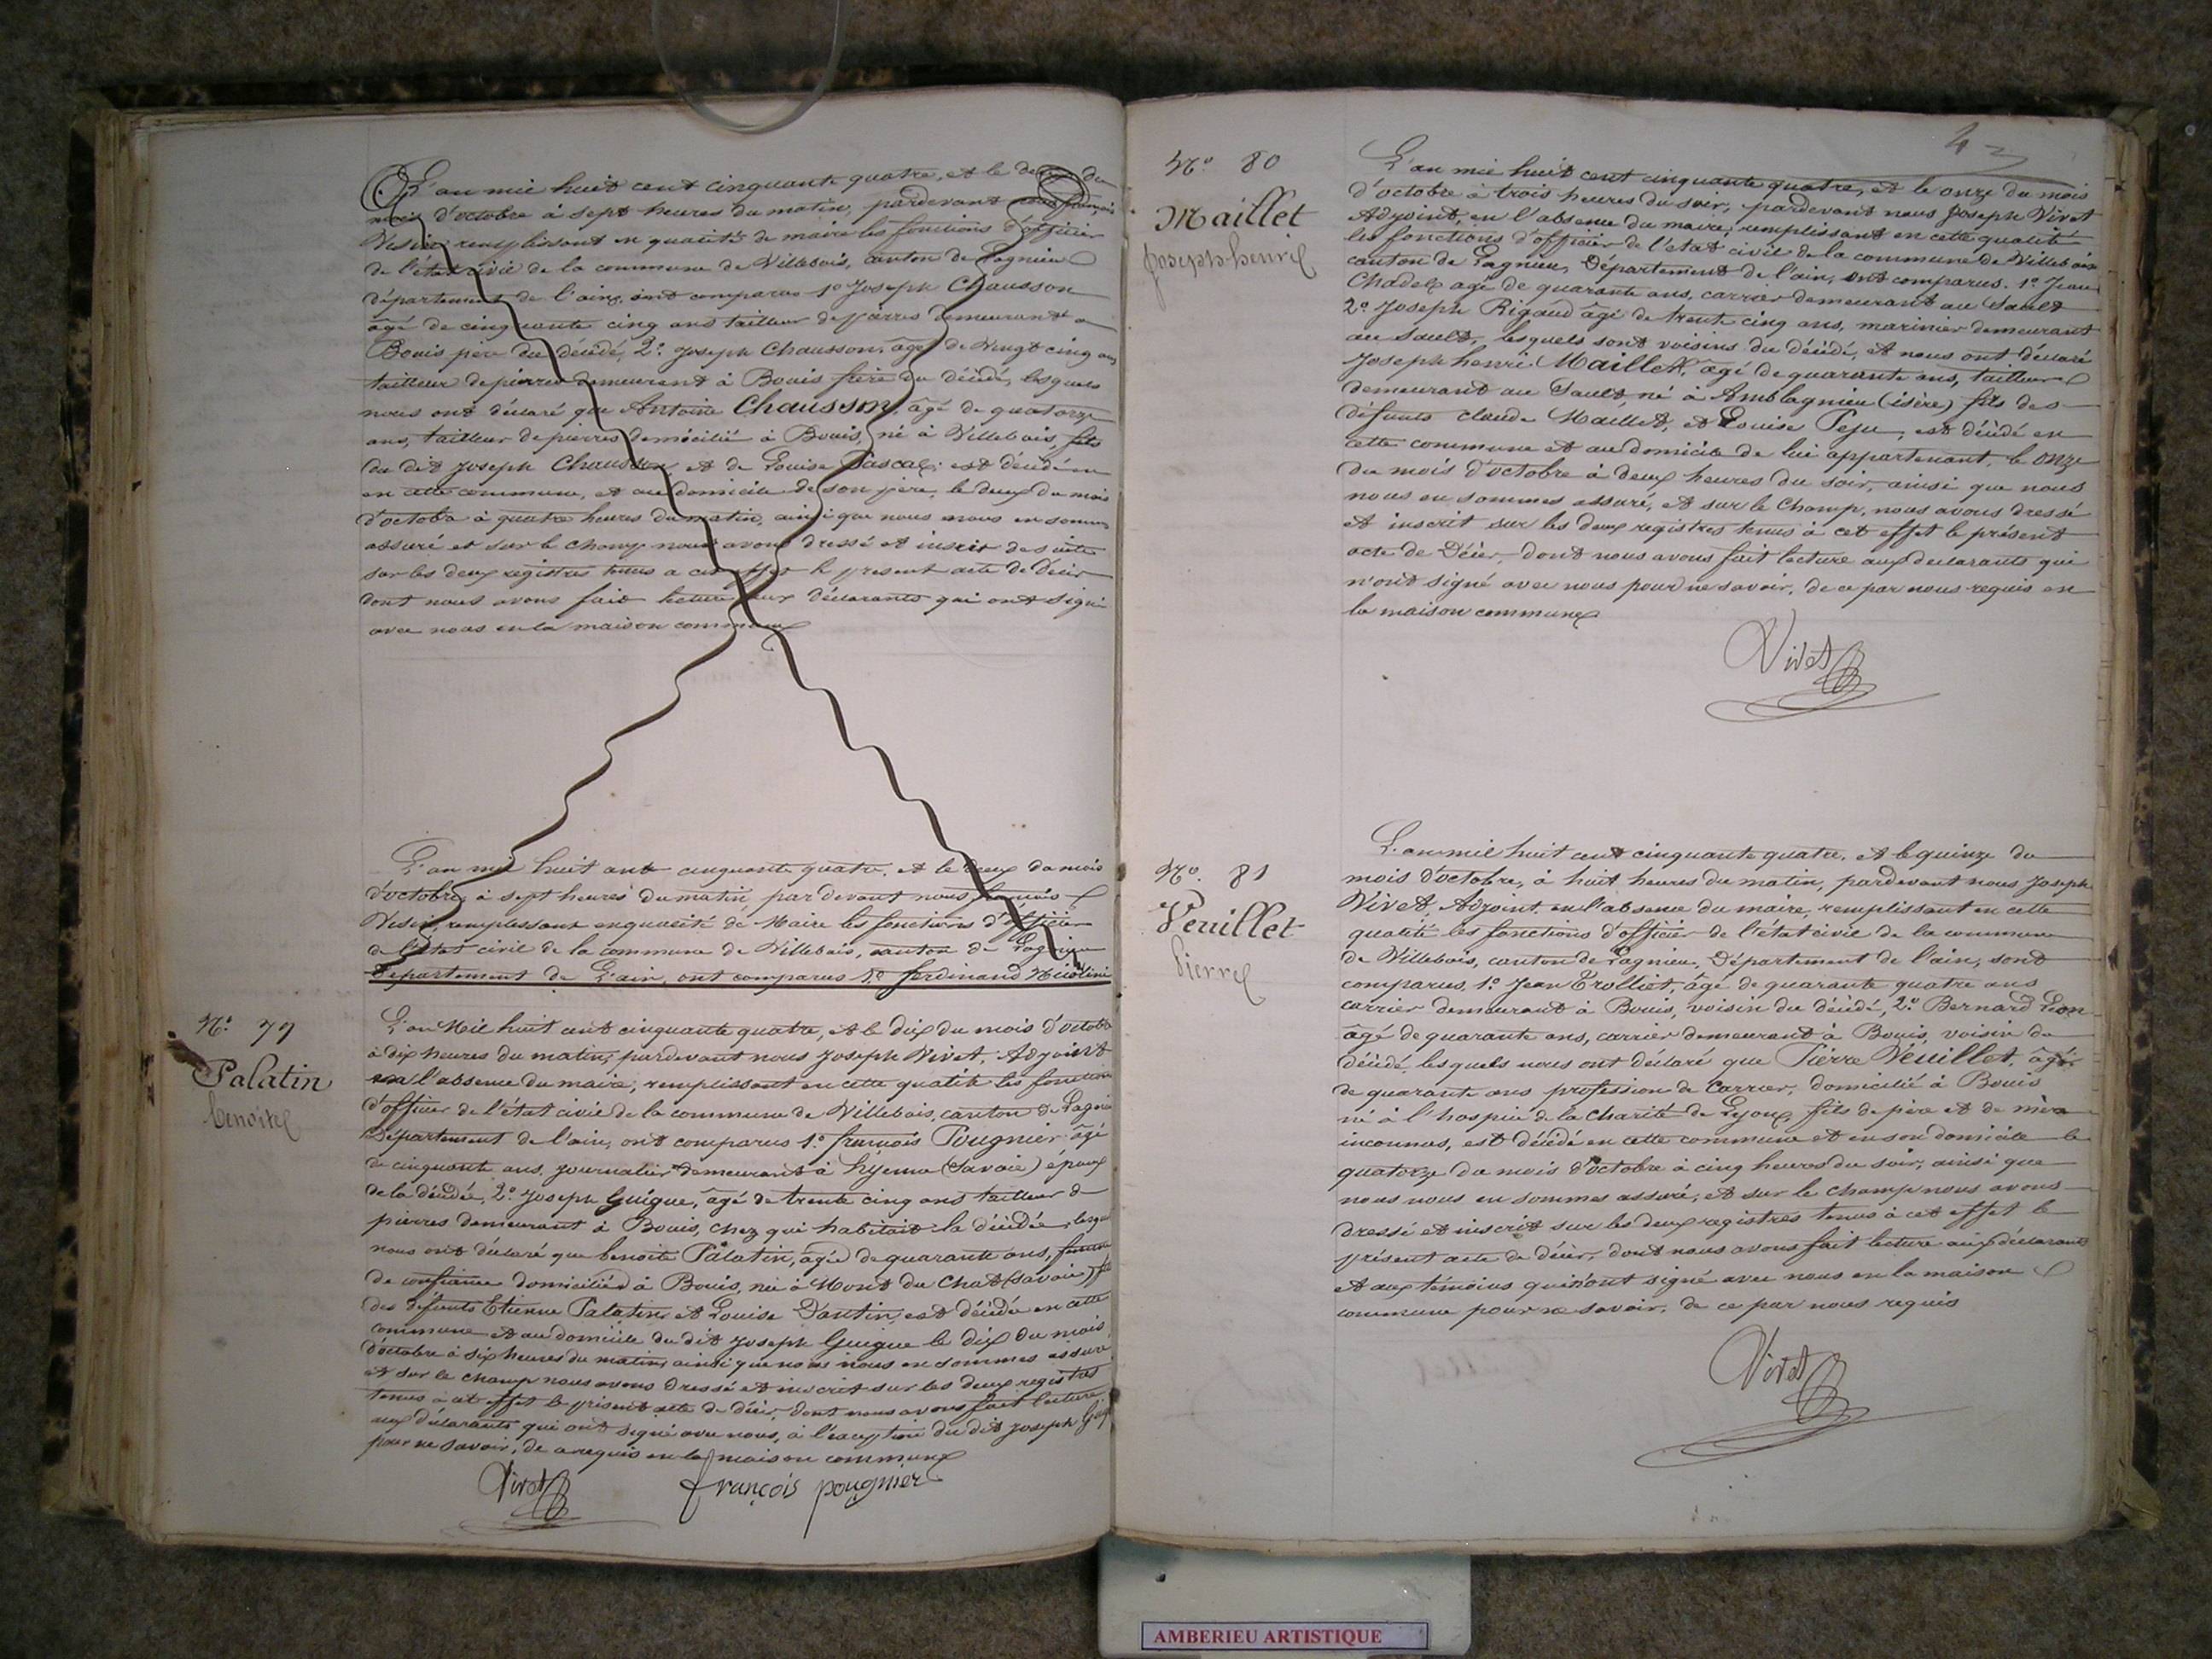 L'an mil huit cent cinquante quatre, et le deux du
mois d'octobre à sept heures du matin, pardevant nous françois
Vesin, remplissant en qualité de maire les fonctions d'officier
de l'état civil de la commune de Villebois, canton de Lagnieu
département de l'ain, ont comparus 1o Joseph Chausson
âgé de cinquante cinq ans tailleur de pierres demeurant a
Bouis père du décédé, 2o. Joseph Chausson, âgé de Vingt cinq ans
tailleur de pierres demeurant à Bouis frère du décédé, lesquels
nous ont déclaré que Antoine Chausson, âgé de quatorze
ans, tailleur de pierres domicilié à Bouis, né à Villebois, fils
du dit Joseph Chausson et de Louise Pascal, est décédé
en cette commune, et au domicile de son père, le deux du mois
d'octobre à quatre heures du matin, ainsi que nous nous en sommes
assuré et sur le champ nous avons dressé et inscrit de suite
sur les deux registres tenus a cet effet le présent acte de Décès
dont nous avons fait lecture aux déclarants qui ont signé
avec nous en la maison commune
L'an mil huit cent cinquante quatre, et le deux du mois
d'octobre, à sept heures du matin, par devant nous françois
Vesin, remplissant en qualité de Maire les fonctions d'officier
de l'état civil de la commune de Villebois, canton de Lagnieu
département de L'ain, ont comparus 1o. ferdinand
No. 79
Palatin
benoite
L'an Mil huit cent cinquante quatre, et le dix du mois d'octobre
à dix heures du matin, pardevant nous Joseph Vivet, Adjoint
en l'absence du maire, remplissant en cette qualité les fonctions
d'officier de l'état civil de la commune de Villebois, canton de Lagnieu
Département de l'ain, ont comparus 1o. françois Pougnier âgé
de cinquante ans, journalier demeurant à hyenne (Savoie) époux
de la décédée, 2o. Joseph Guigue, âgé de trente cinq ans tailleur de
pierres demeurant à Bouis, chez qui habitait la décédée, lesquels
nous ont déclaré que benoite Palatin, âgée de quarante ans, femme
de confiance domiciliée à Bouis, née à Mont du Chat (Savoie) fille
des défunts Etienne Palatin, et Louise Dantin, est décédée en cette
commune et au domicile du dit Joseph Guigue le dix du mois
d'octobre à six heures du matin, ainsi que nous nous en sommes assuré
et sur le champ nous avons dressé et inscrit sur les deux registres
tenus à cet effet le présent acte de décès, dont nous avons fait lecture
aux déclarants qui ont signé avec nous, à l'exception du dit Joseph Guigue
pour ne savoir, de ce requis en la maison commune
Vivet françois pougnier
42
No. 80
Maillet
Joseph-henri
L'an mil huit cent cinquante quatre, et le onze du mois
d'octobre à trois heures du soir, pardevant nous Joseph Vivet
Adjoint, en l'absence du maire, remplissant en cette qualité
les fonctions d'officier de l'état civil de la commune de Villebois
canton de Lagnieu, Département de l'ain, ont comparus. 1o. Jean
Chadel âgé de quarante ans, carrier demeurant au Sault
2o. Joseph Rigaud âgé de trente cinq ans, marinier demeurant
au Sault, lesquels sont voisins du décédé, et nous ont déclaré
Joseph henri Maillet, âgé de quarante ans, tailleur
demeurant au Sault, né à Amblagnieu (isère) fils des
défunts claude Maillet, et Louise Peju, est décédé en
cette commune et au domicile de lui appartenant, le onze
du mois d'octobre à deux heures du soir, ainsi que nous
nous en sommes assuré, et sur le champ, nous avons dressé
et inscrit sur les deux registres tenus à cet effet le présent
acte de Décès, dont nous avons fait lecture aux déclarants qui
n'ont signé avec nous pour ne savoir, de ce par nous requis en
la maison commune
Vivet
No. 81
Veuillet
Pierre
L'an mil huit cent cinquante quatre, et le quinze du
mois d'octobre, à huit heures du matin, pardevant nous Joseph
Vivet, Adjoint, en l'absence du maire, remplissant en cette
qualité les fonctions d'officier de l'état civil de la commune
de Villebois, canton de Lagnieu, Département de l'ain, sont
comparus, 1o. Jean Trolliet, âgé de quarante quatre ans
carrier demeurant à Bouis, voisin du décédé, 2o. Bernard Leon
âgé de quarante ans, carrier demeurant à Bouis, voisin du
décédé, lesquels nous ont déclaré que Pierre Veuillet, âgé
de quarante ans profession de Carrier, domicilié à Bouis
né à l'hospice de la Charité de Lyon, fils de père et de mère
inconnus, est décédé en cette commune et en son domicile le
quatorze du mois d'octobre à cinq heures du soir, ainsi que
nous nous en sommes assuré, et sur le champ nous avons
dressé et inscrit sur les deux registres tenus à cet effet le
présent acte de décès, dont nous avons fait lecture aux déclarants
et aux témoins qui n'ont signé avec nous en la maison
commune pour ne savoir, de ce par nous requis
Vivet
AMBERIEU ARTISTIQUE